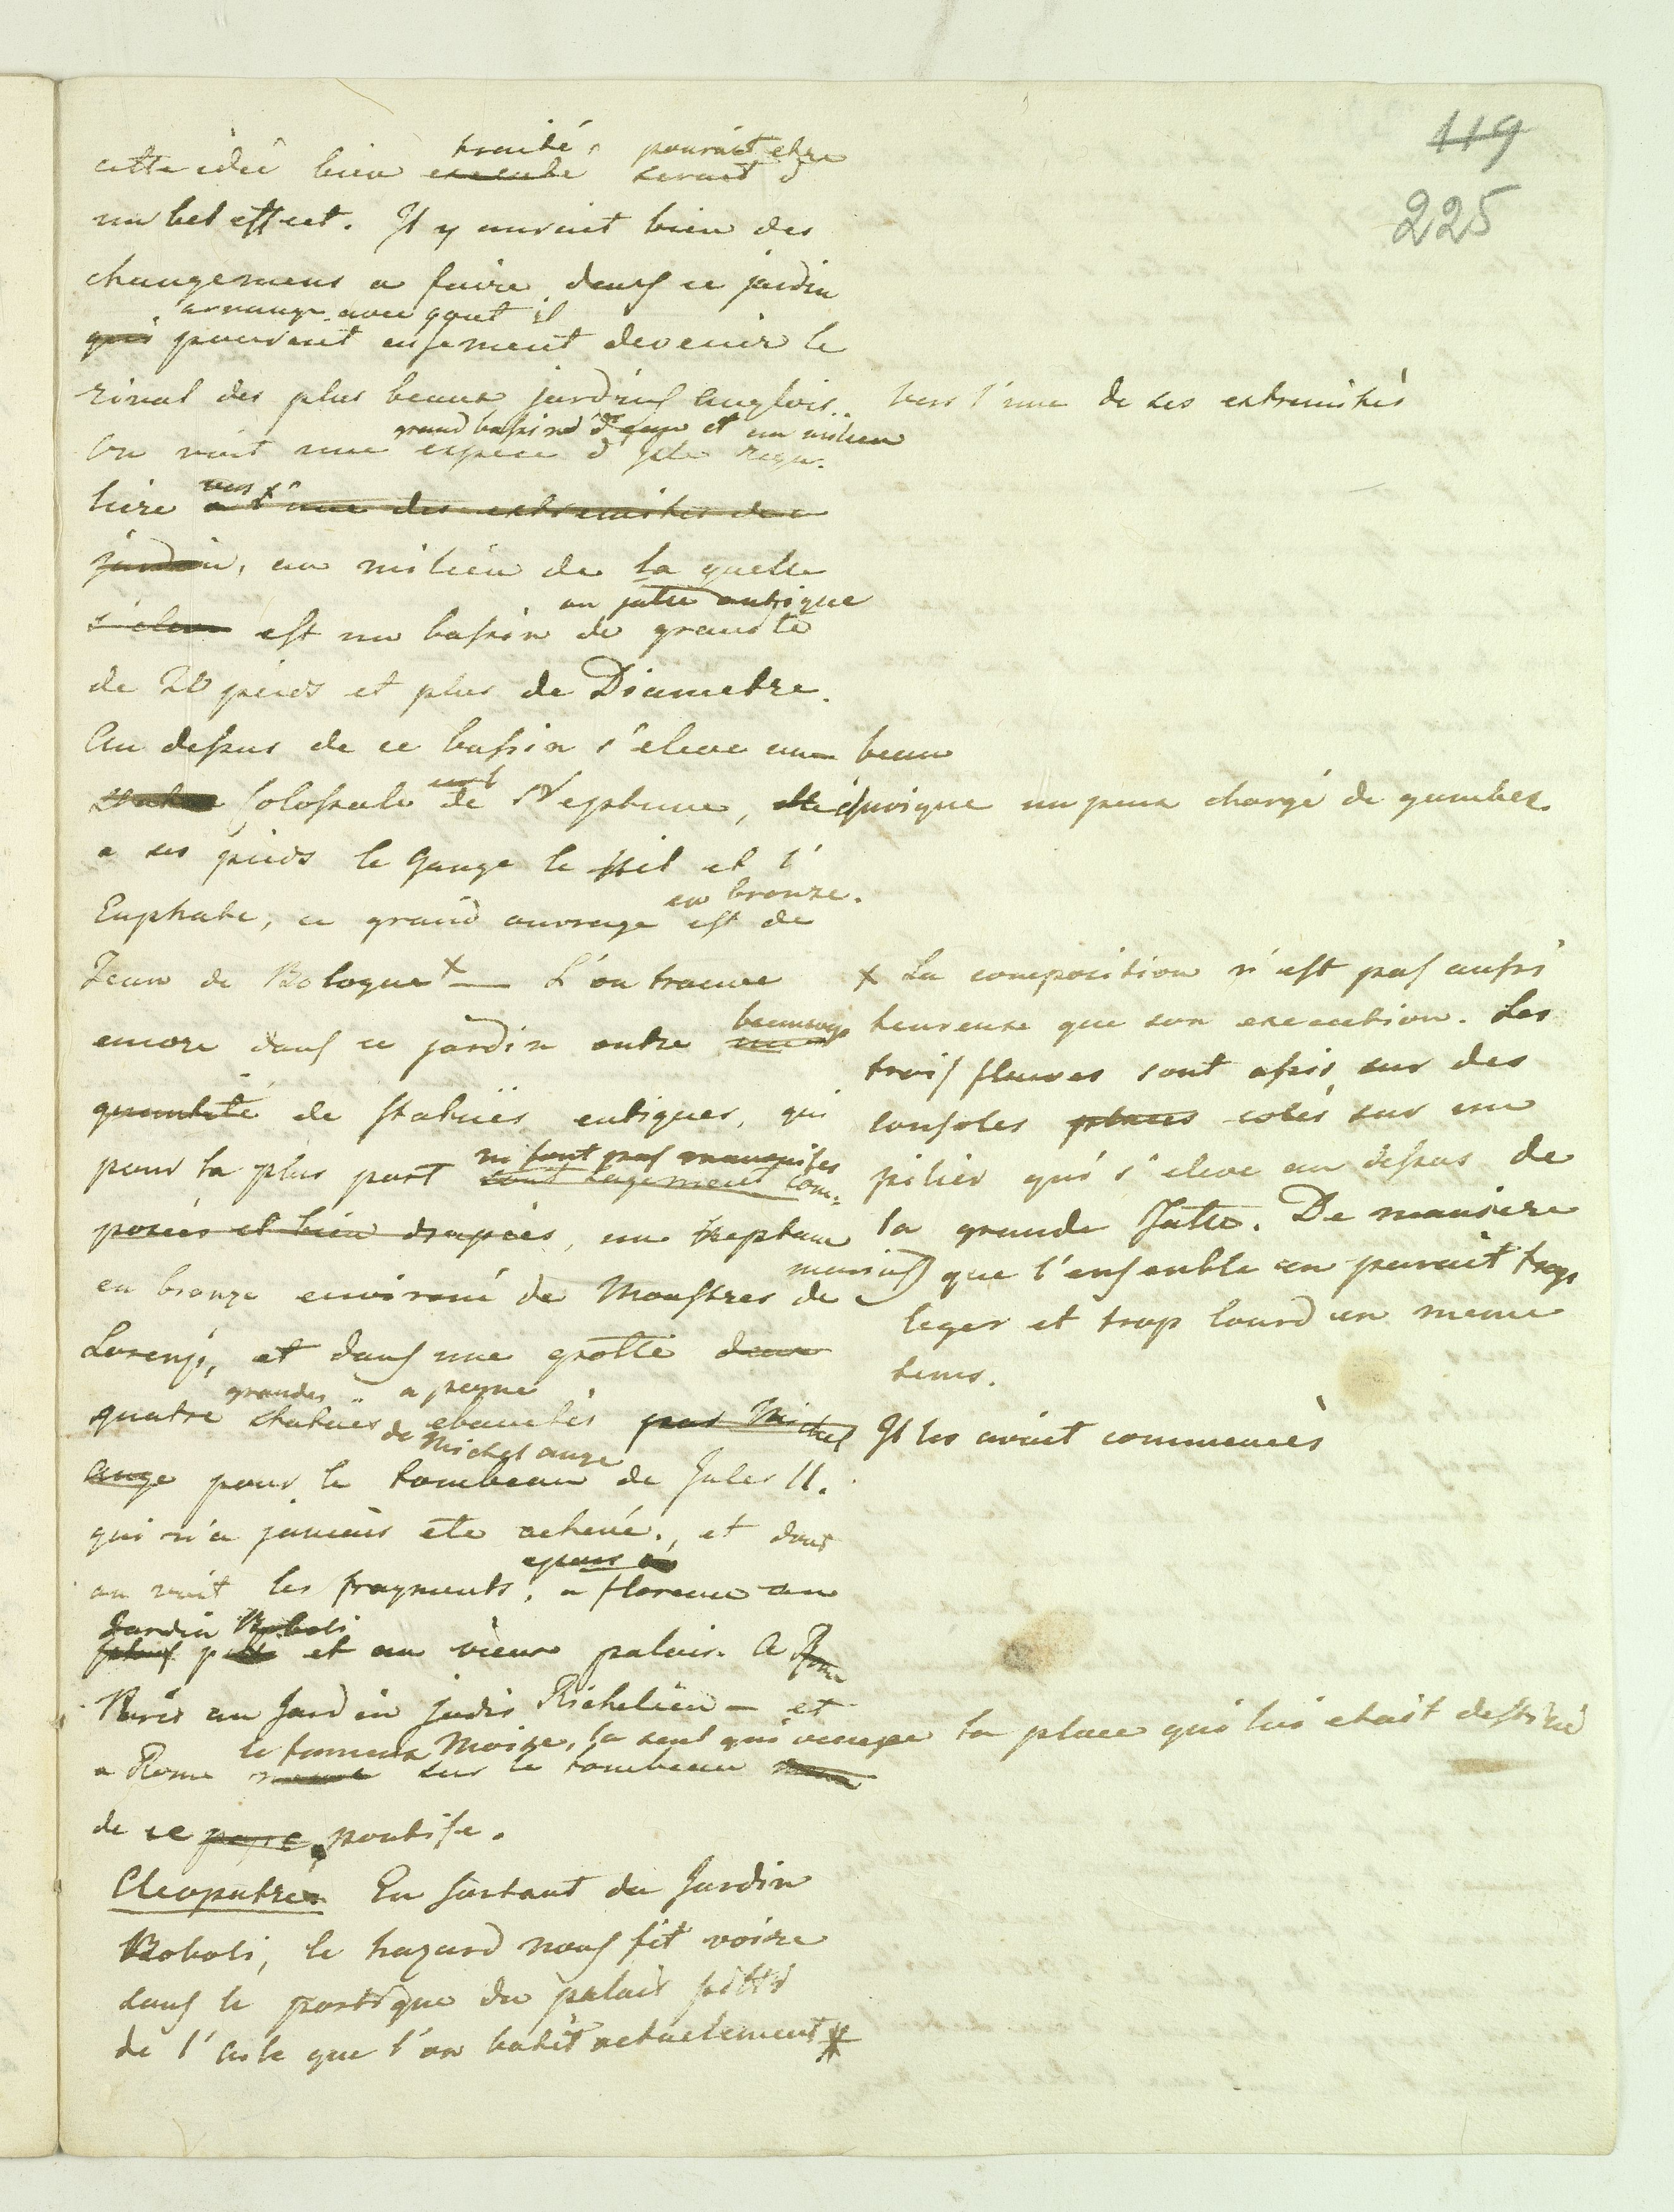 119
225
traité, pouroit etre
cette idée bien executé seroit d'
un bel effect. Il y auroit bien des
changemens a faire dans ce jardin
arrangé avec gout il
qui pouroit aisement devenir le
rival des plus beaux jardins anglois.. vers l'une de ses extremités
grand bassin d'eau et au milieu
On voit une espece d'Isle regu-
vers x
liere a l'une des extremités de ce
jardin, au milieu de la quelle
ou jatte antique
s'eleve est un bassin de granite
de 20 pieds et plus de Diametre.
Au dessus de ce bassin s'eleve un beau
Colossale de Neptune, quoique un peux chargé de gambes.
a ses pieds le Gange le Nil et l'
en bronze.
Euphate, ce grand ouvrage est de
Jean de Bologne x — L'on trouve
beaucoup
encore dans ce jardin outre une
quantité de statuës antiques, qui
ne sont pas mauvaises
pour la plus part sont sagement com-
posées et bien drapées, un Neptune
marins
en bronze environé de Monstres de
Lorenzi, et dans une grotte deux
grandes a peine
quatre statuës ebauchés par Michel Il les avait commencés
de Michel ange
ange pour le tombeau de Jules II.
qui n'a jamais ete achevé., et dont
epars
on voit les fragments, a florence au
Jardin Boboli
palais pitti et au vieux palais. A Rome
Paris au Jardin jadis Richelieu — et
le fameux Moize, le seul qui occupe la place qui lui etait destiné
a Rome sur le tombeau
de ce pape pontife.
x La composition n'est pas aussi
heureuse que son execution. Les
trois fleuves sont assis sur des
consoles placés colés sur un
pilier qui s'eleve au dessus de
la grande Jatte. De maniere
que l'ensemble en paroit trop
leger et trop lourd en meme
tems.
Cleopatre. En sortant du Jardin
Boboli, le hazard nous fit voire
sous le portique du palais pitti
de l'aisle que l'on batit actuelement